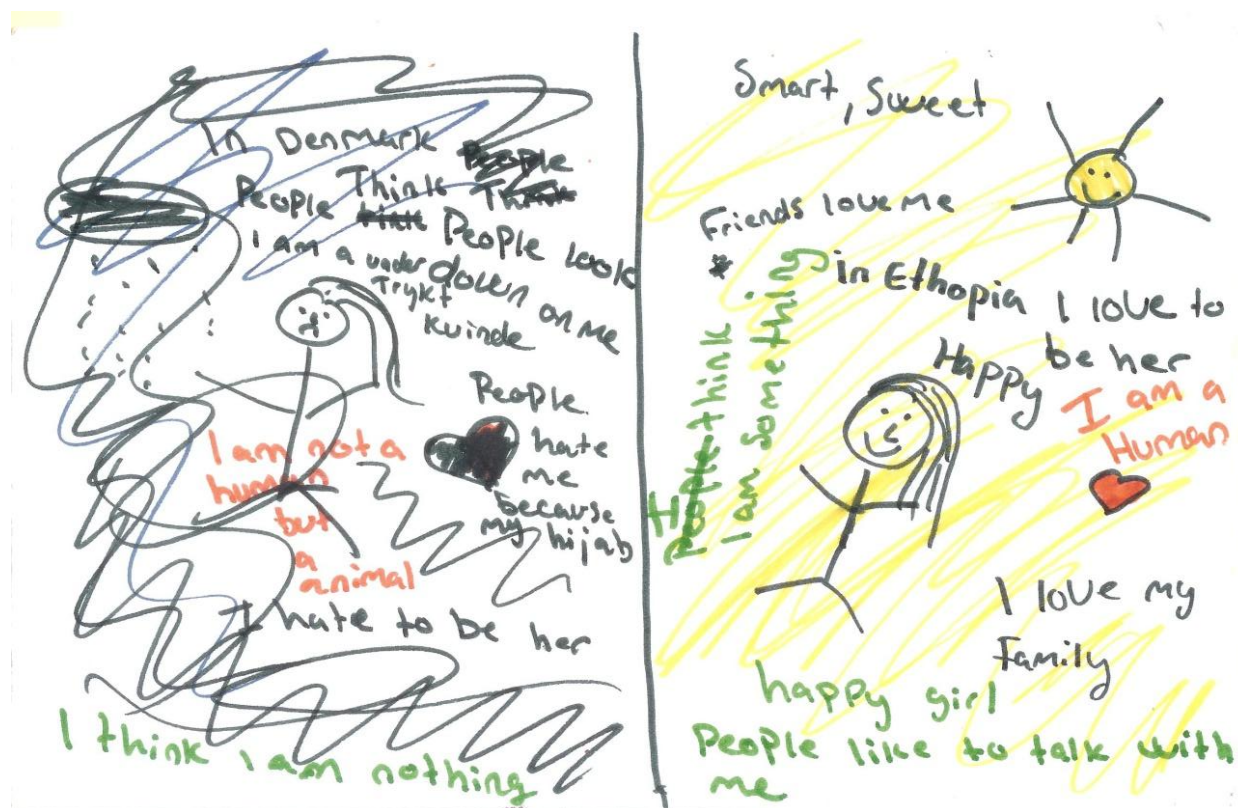 In Denmark
People Think
I am a under
Trykt
Kvinde
People look
down on me
People
hate
me
because
my hijab
I am not a
human
but
a
animal
I hate to be her
I think I am nothing
Smart, Sweet
Friends love me
in Ethopia I love to
be her
Happy
I am a
Human
People think
I am something
I love my
Family
happy girl
People like to talk with
me